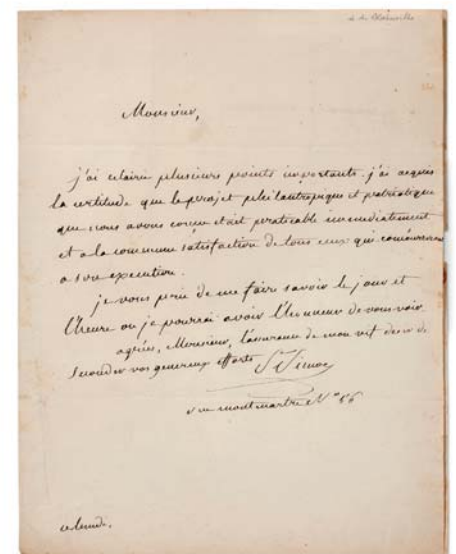 Monsieur,
j'ai eclairci plusieurs points importants. j'ai acquis
la certitude que le projet philantropique et patriotique
que nous avons conçu etait praticable immediatement
et a la commune satisfaction de tous ceux qui concourreront
a son execution.
je vous prie de me faire savoir le jour et
l'heure ou je pourrai avoir l'honneur de vous voir
agréés, Monsieur, l'assurance de mon vif desir de
seconder vos genereux efforts St Simon
rue montmartre N°
ce lundi.